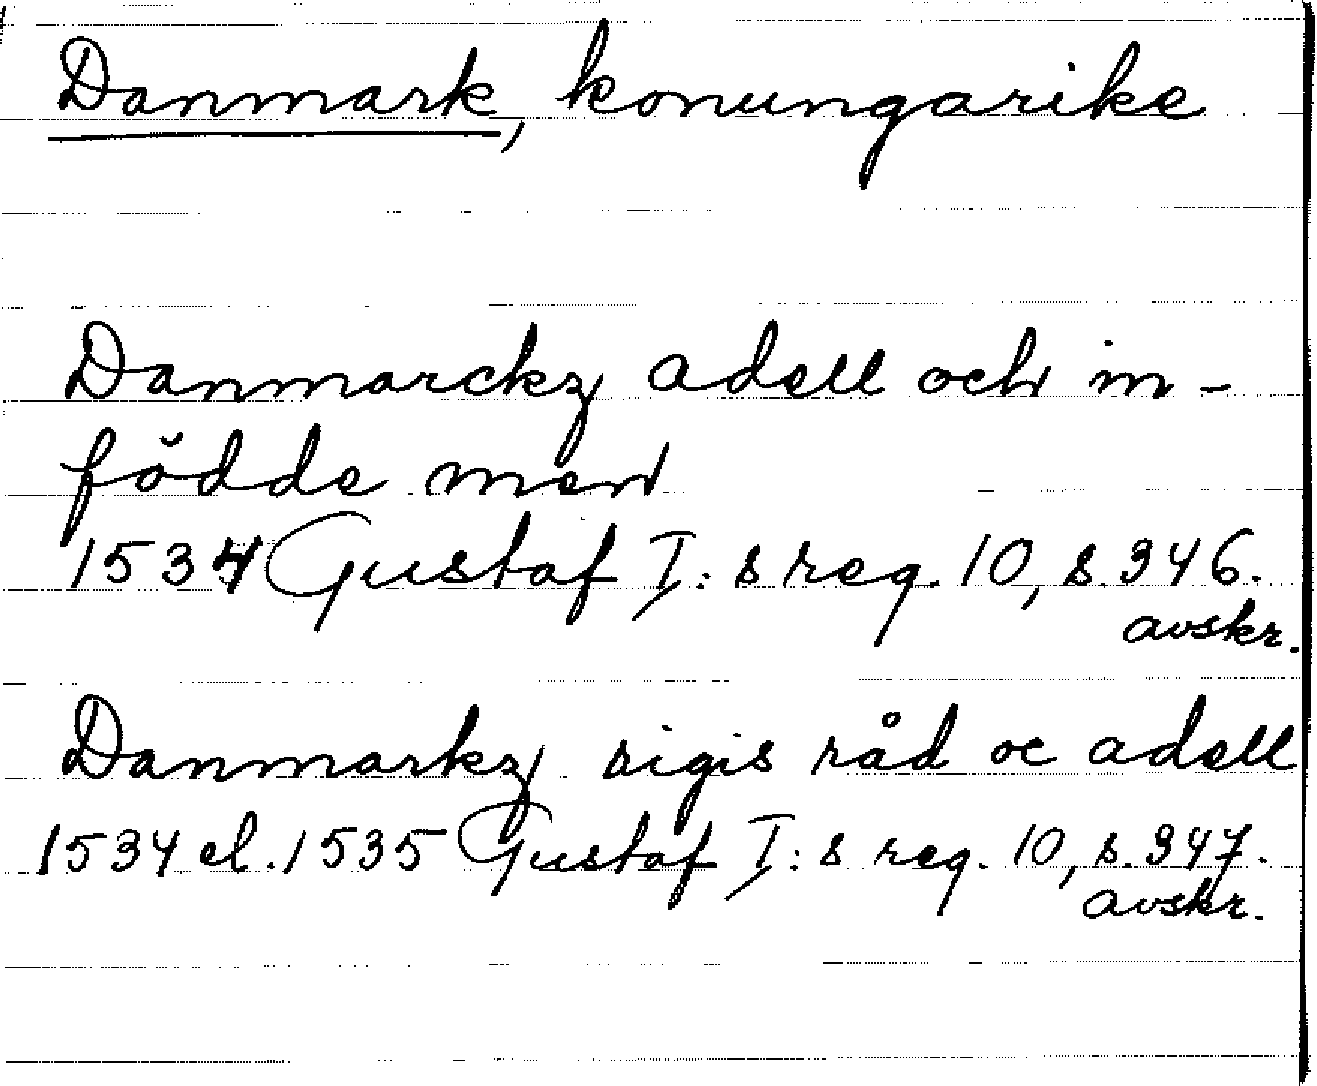 Danmark, konungarike
Danmarckz adell och in-
födde men
1534 Gustaf I:s reg. 10, s. 346.
avskr.
Danmarkz rigis råd oc adell
1534 el. 1535 Gustaf I:s reg. 10, s. 347.
avskr.